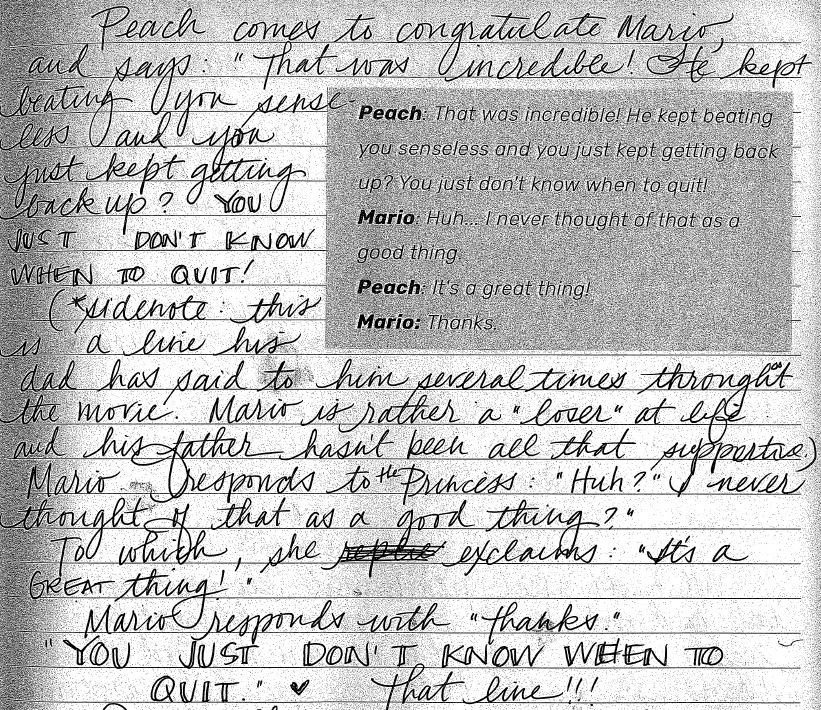 Peach comes to congratulate Mario,
and says: "That was incredible! He kept
beating you sense-
less and you
just kept getting
back up? YOU
JUST DON'T KNOW
WHEN TO QUIT!
(*sidenote: this
is a line his
dad has said to him several times throughout
the movie. Mario is rather a "loser" at life
and his father hasn't been all that supportive.)
Mario responds to the Princess: "Huh?" I never
thought of that as a good thing?"
To which, she exclaims: "It's a
GREAT thing!"
Mario responds with "thanks."
"YOU JUST DON'T KNOW WHEN TO
QUIT." ♥ That line!!!
Peach: That was incredible! He kept beating
you senseless and you just kept getting back
up? You just don't know when to quit!
Mario: Huh... I never thought of that as a
good thing.
Peach: It's a great thing!
Mario: Thanks.